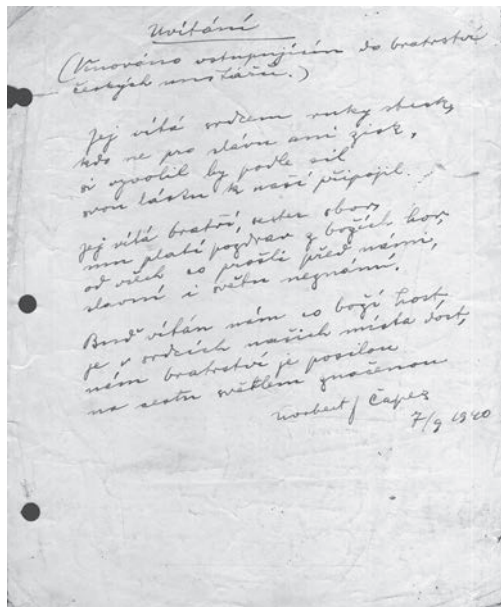 Uvítání
(Věnováno vstupujícím do bratrství
českých unitářů.)
Jej vítá srdcem ruky stisk,
kdo ne pro slávu ani zisk,
si vyvolil by podle sil
svou lásku k naší připojil.
Jej vítá bratří, sester sbor,
mu platí pozdrav z božích hor,
od všech co prošli před námi,
slavní i světu neznámí.
Buď vítán nám co boží host,
je v srdcích našich místa dost,
nám bratrství je posilou
na cestu světlem značenou
Norbert F Čapek
7/9 1940